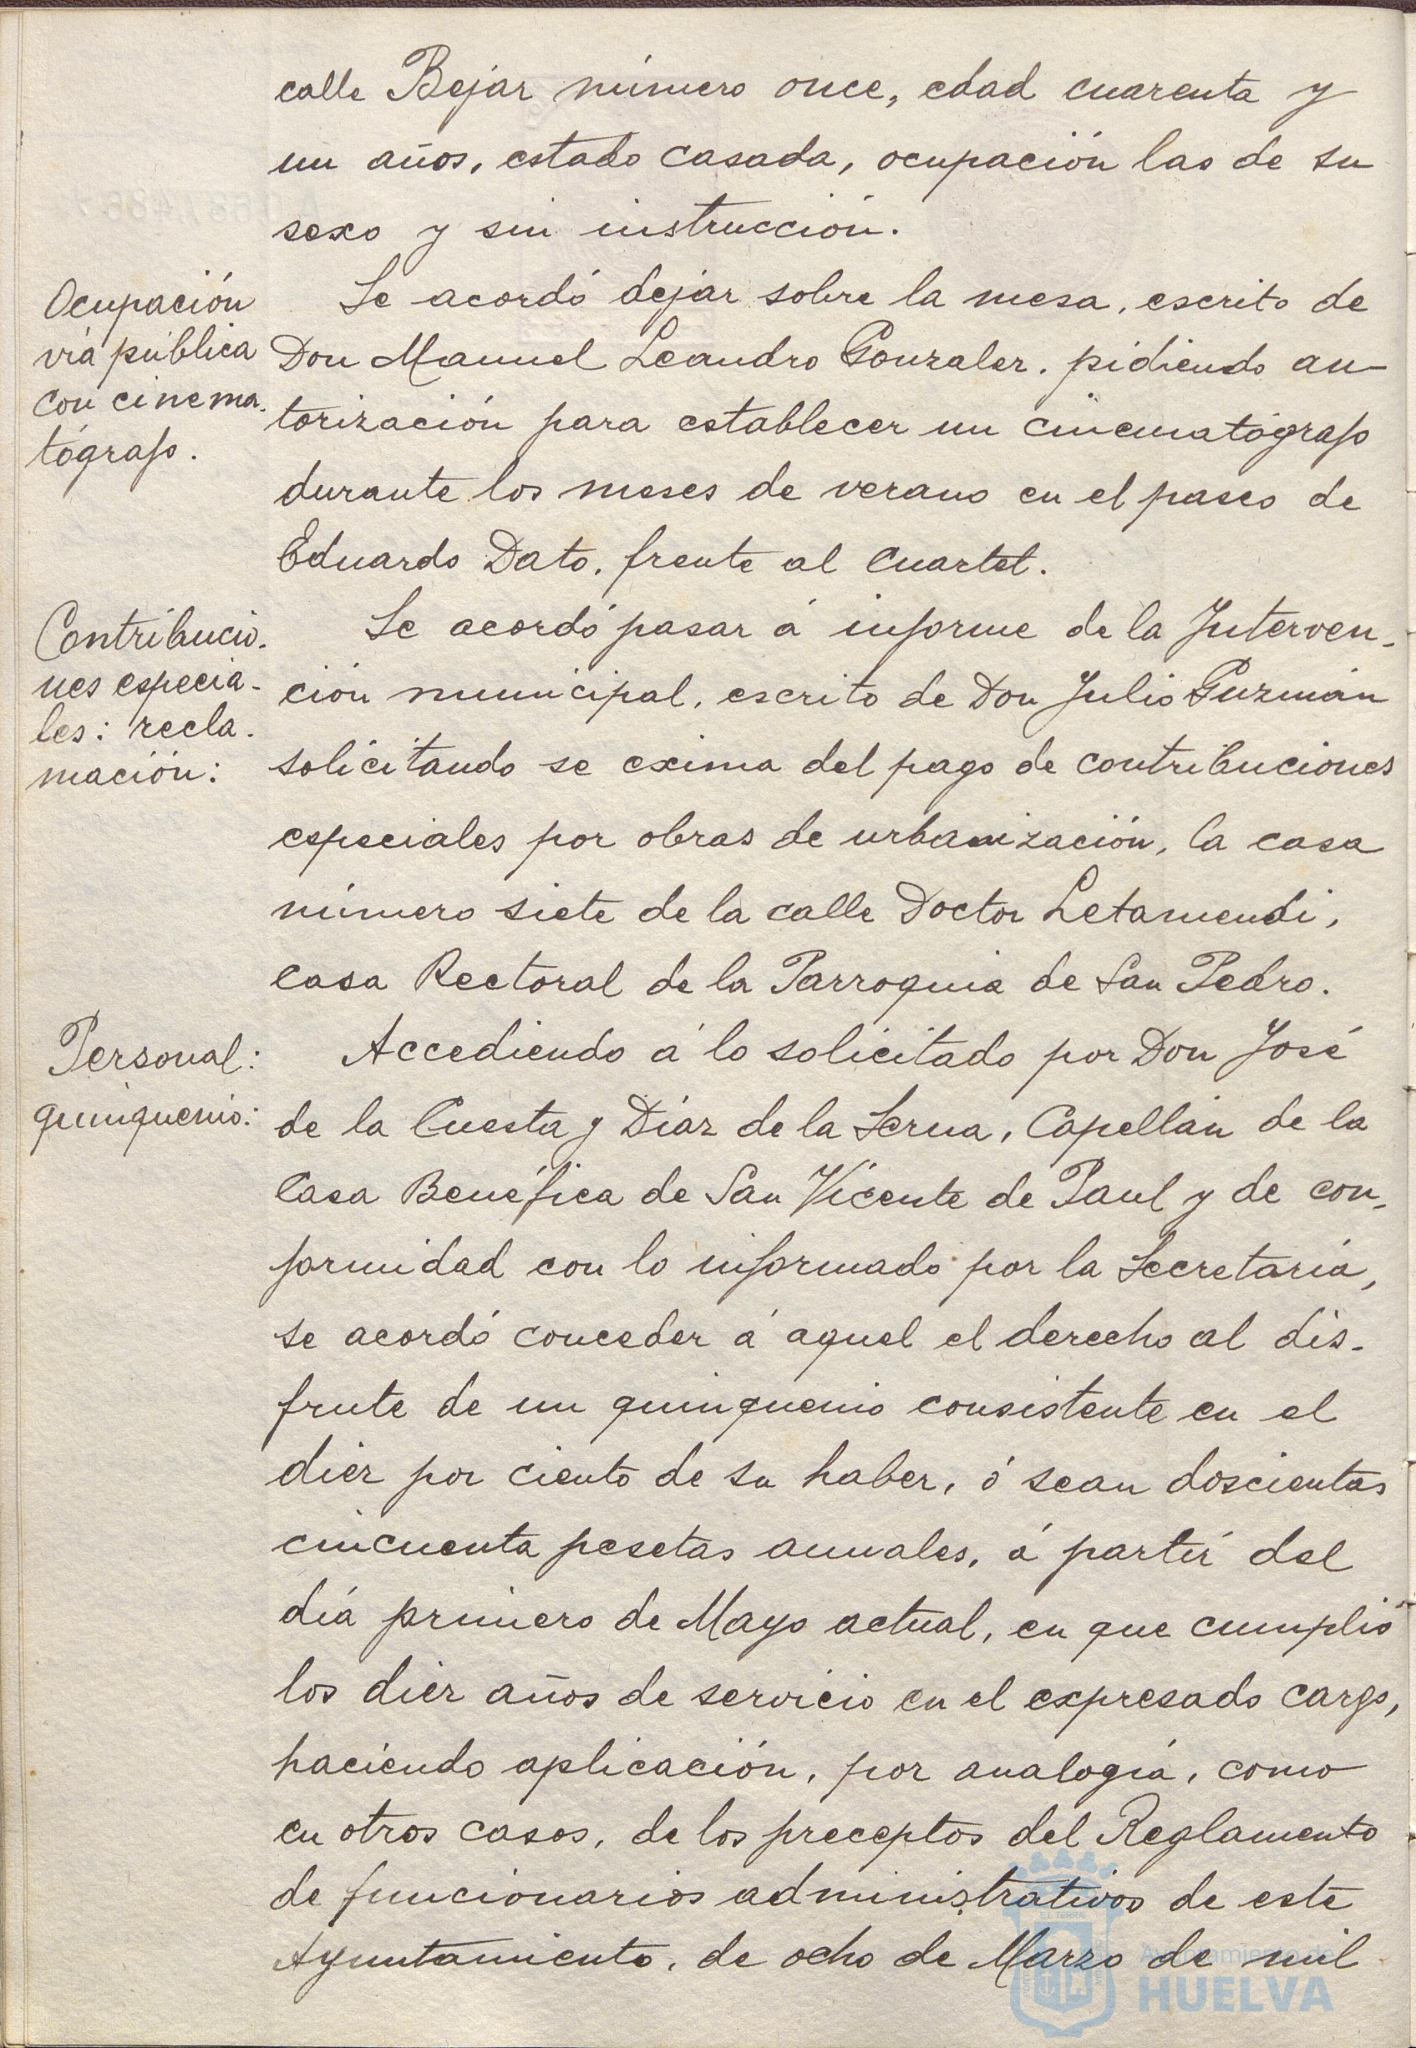 calle Bejar número once, edad cuarenta y
un años, estado casada, ocupación las de su
sexo y sin instrucción.
Ocupación
vía pública
con cinema-
tógrafo.
Se acordó dejar sobre la mesa, escrito de
Don Manuel Leandro Gonzalez, pidiendo au-
torización para establecer un cinematógrafo
durante los meses de verano en el paseo de
Eduardo Dato, frente al Cuartel.
Contribucio-
nes especia-
les: recla-
mación:
Se acordó pasar á informe de la Interven-
ción municipal, escrito de Don Julio Guzmán
solicitando se exima del pago de contribuciones
especiales por obras de urbanización, la casa
número siete de la calle Doctor Letamendi,
Casa Rectoral de la Parroquia de San Pedro.
Personal:
quinquenio:
Accediendo á lo solicitado por Don José
de la Cuesta y Díaz de la Serna, Capellán de la
Casa Benéfica de San Vicente de Paul y de con-
formidad con lo informado por la Secretaría,
se acordó conceder á aquel el derecho al dis-
frute de un quinquenio consistente en el
diez por ciento de su haber, ó sean doscientas
cincuenta pesetas anuales, á partir del
día primero de Mayo actual, en que cumplió
los diez años de servicio en el expresado cargo,
haciendo aplicación, por analogía, como
en otros casos, de los preceptos del Reglamento
de funcionarios administrativos de este
Ayuntamiento, de ocho de Marzo de mil
Ayuntamiento de
HUELVA